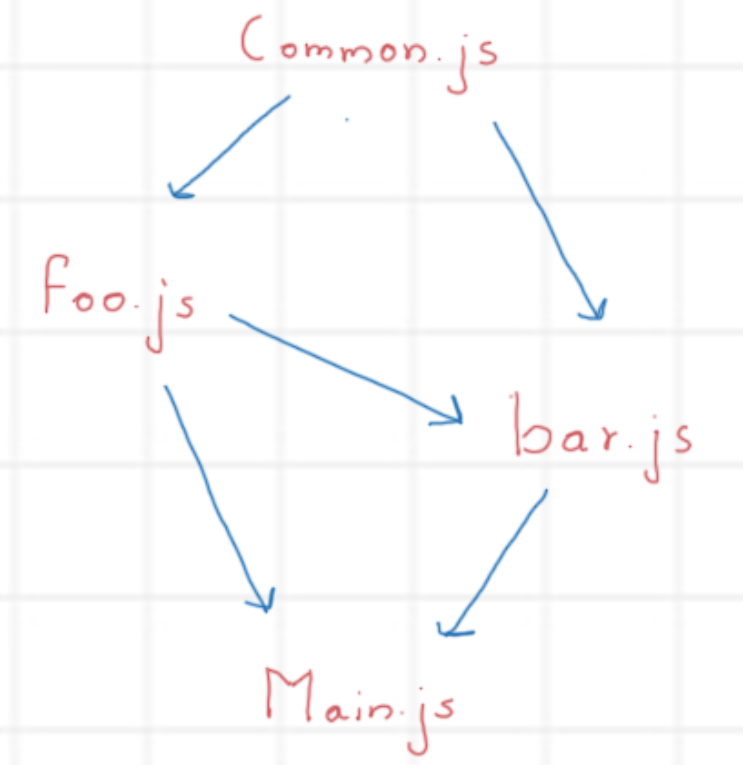 Common.js
foo.js
bar.js
Main.js